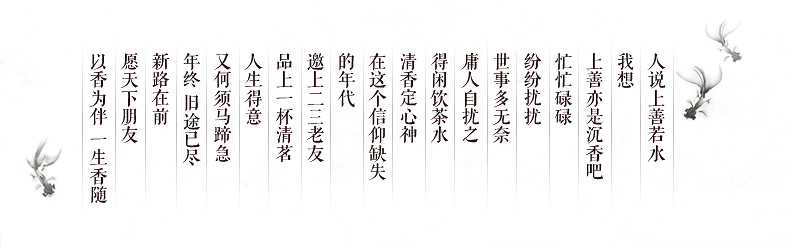 人说上善若水
我想
上善亦是沉香吧
忙忙碌碌
纷纷扰扰
世事多无奈
庸人自扰之
得闲饮茶水
清香定心神
在这个信仰缺失
的年代
邀上二三老友
品上一杯清茗
人生得意
又何须马蹄急
年终 旧途已尽
新路在前
愿天下朋友
以香为伴 一生香随